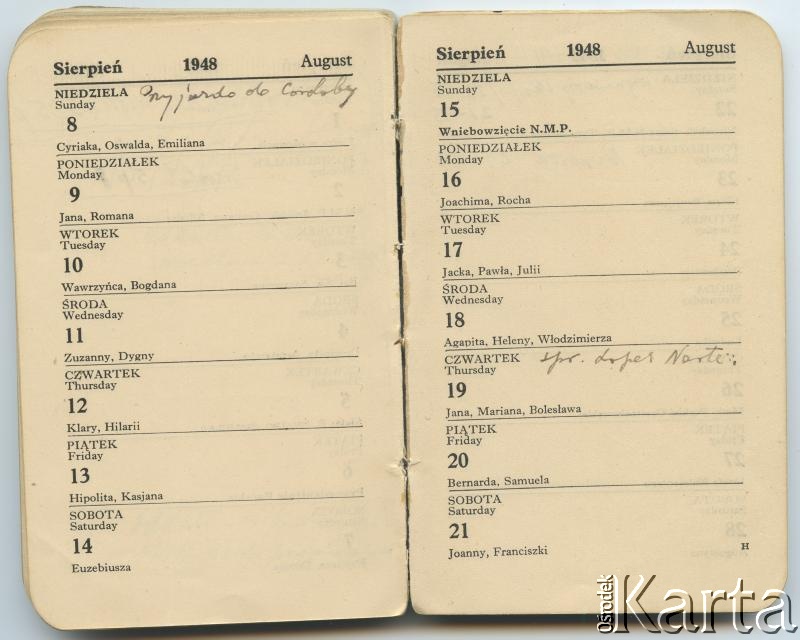 Sierpień 1948 August
NIEDZIELA do Cordoby
Sunday
8
Cyriaka, Oswalda, Emiliana
PONIEDZIAŁEK
Monday
9
Jana, Romana
WTOREK
Tuesday
10
Wawrzyńca, Bogdana
ŚRODA
Wednesday
11
Zuzanny, Dygny
CZWARTEK
Thursday
12
Klary, Hilarii
PIĄTEK
Friday
13
Hipolita, Kasjana
SOBOTA
Saturday
14
Euzebiusza
Sierpień 1948 August
NIEDZIELA
Sunday
15
Wniebowzięcie N.M.P.
PONIEDZIAŁEK
Monday
16
Joachima, Rocha
WTOREK
Tuesday
17
Jacka, Pawła, Julii
ŚRODA
Wednesday
18
Agapita, Heleny, Włodzimierza
CZWARTEK spr.
Thursday
19
Jana, Mariana, Bolesława
PIĄTEK
Friday
20
Bernarda, Samuela
SOBOTA
Saturday
21
Joanny, Franciszki
H
Ośrodek Karta